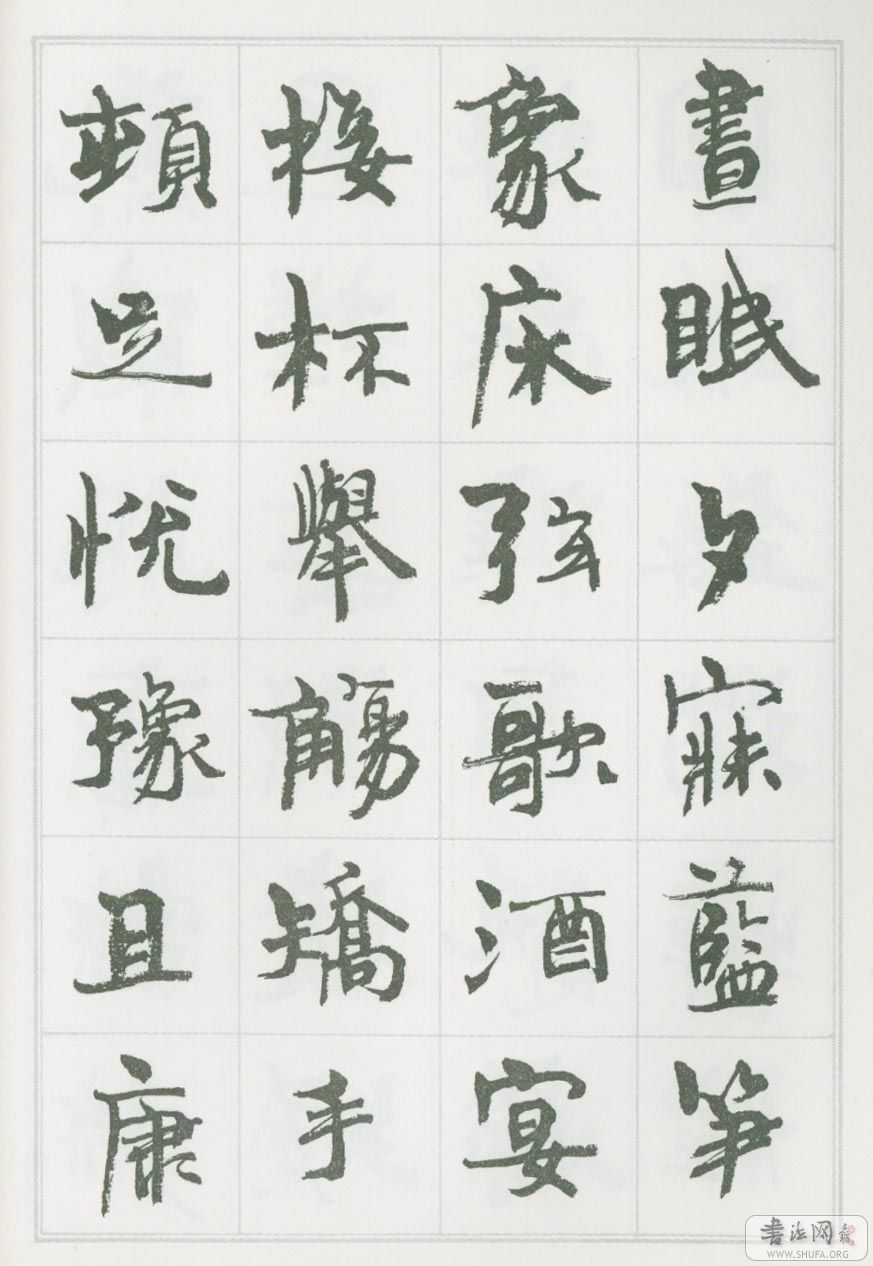 晝眠夕寐藍笋
象床弦歌酒宴
接杯舉觴矯手
頓足悅豫且康
書法网
WWW.SHUFA.ORG